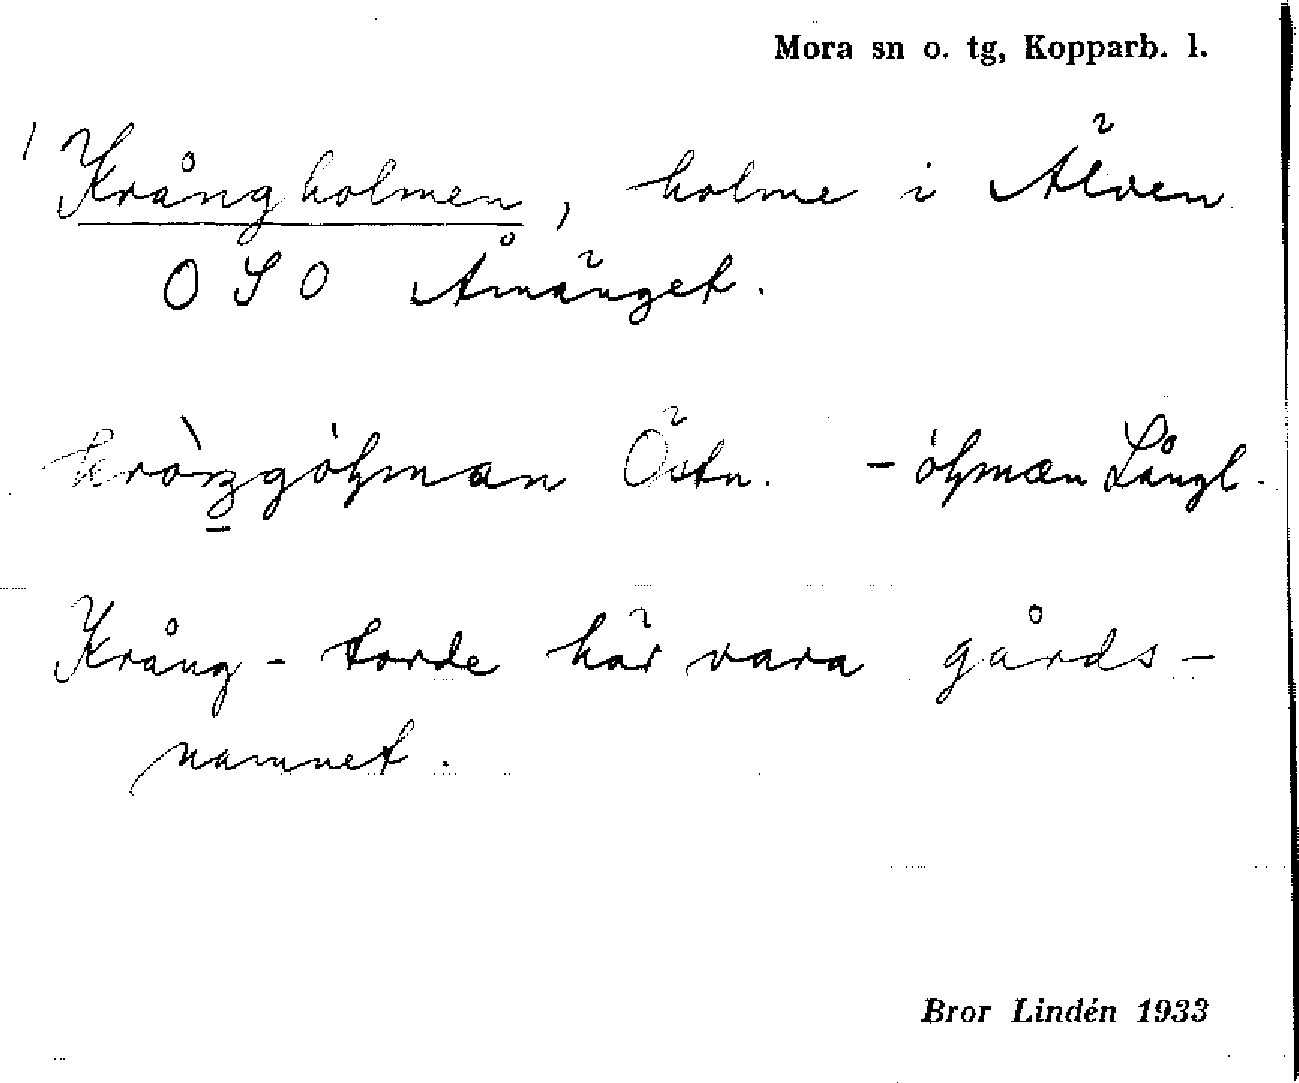 Mora sn o. tg, Kopparb. l.
Krångholmen, holme i Älven
OSO Åmänget.
Östn. Långl.
Krång- torde här vara gårds-
namnet.
Bror Lindén 1933